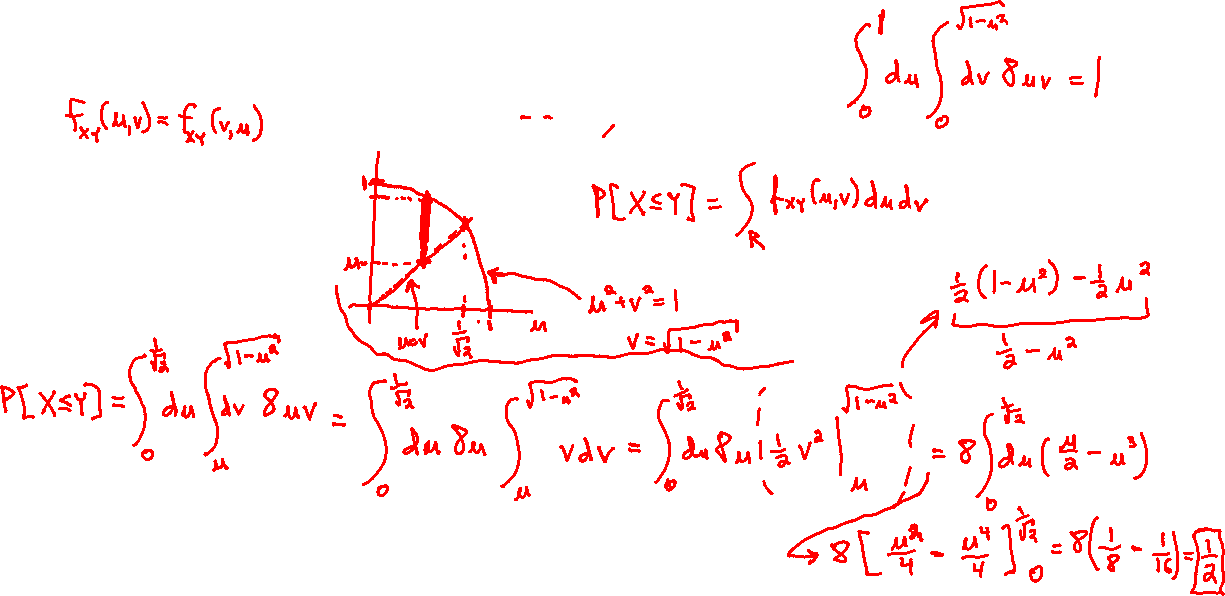 ∫₀¹ du ∫₀^√(1-u²) dv 8uv = 1
f_XY(u,v) = f_XY(v,u)
P[X≤Y] = ∫_R f_XY(u,v) du dv
1
u
u=v
1/√2
u
u²+v²=1
v=√(1-u²)
½(1-u²) - ½u²
½ - u²
P[X≤Y] = ∫₀^(1/√2) du ∫_u^√(1-u²) dv 8uv = ∫₀^(1/√2) du 8u ∫_u^√(1-u²) v dv = ∫₀^(1/√2) du 8u ½v² |_u^√(1-u²) = 8∫₀^(1/√2) du (u/2 - u³)
→ 8[u²/4 - u⁴/4]₀^(1/√2) = 8(1/8 - 1/16) = 1/2